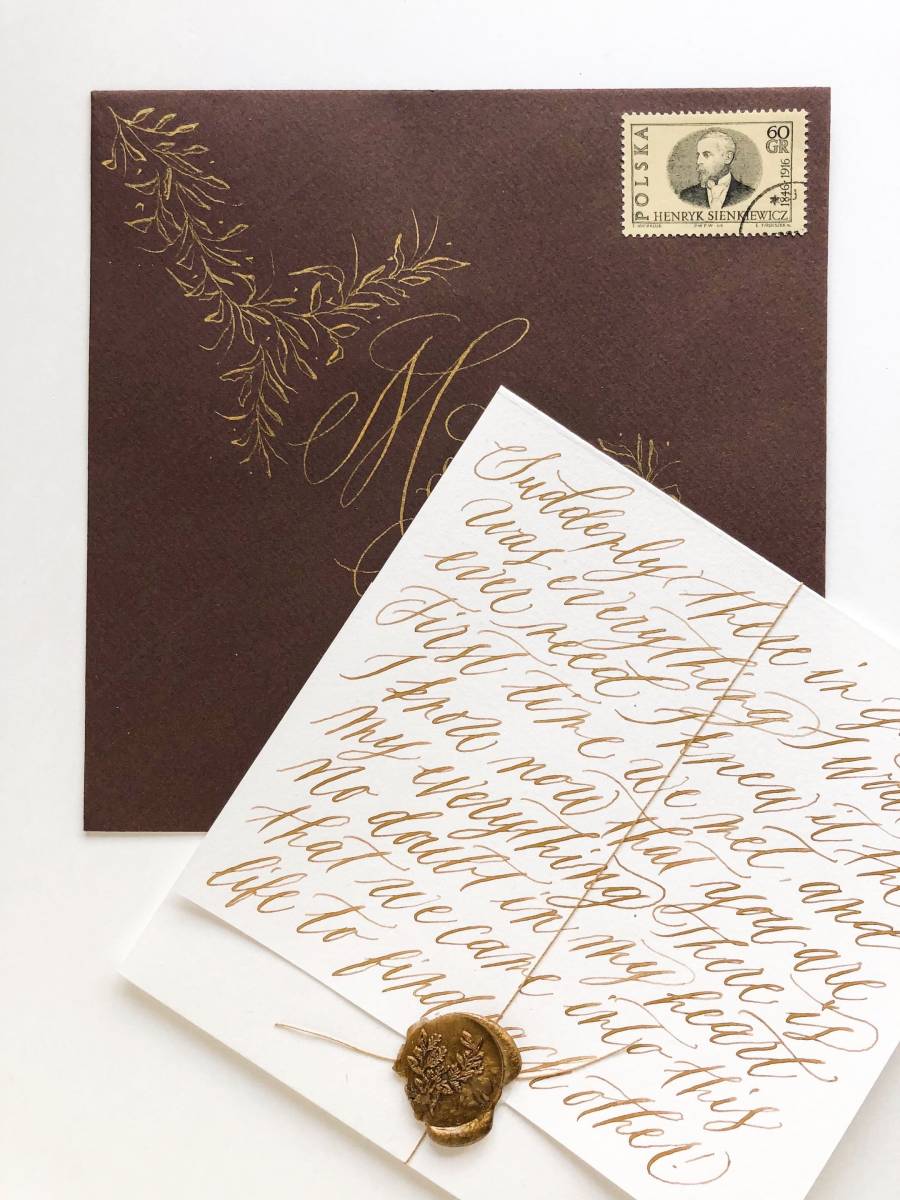 POLSKA
60
GR
1846-1916
HENRYK SIENKIEWICZ
M
Suddenly, there in
was everything I
ever need. I knew it the
First time we met, and
I know now that you are
my everything. There is
no doubt in my heart
that we came into this
life to find other!